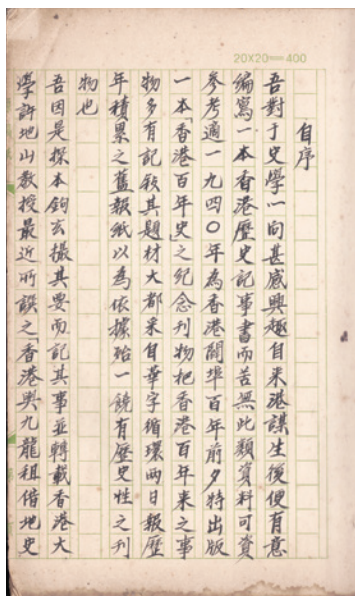 20X20=400
自序
吾對于史學一向甚感興趣自来港謀生後便有意
編寫一本香港歷史記事書而苦無此類資料可資
參考適一九四〇年為香港開埠百年前夕特出版
一本「香港百年史」之紀念刊物把香港百年来之事
物多有記錄其題材大都采自華字循環兩日報歷
年積累之舊報紙以為依據殆一饒有歷史性之刊
物也
吾因是探本鉤玄撮其要而記其事並轉載香港大
學許地山教授最近所譔之「香港與九龍租借地史